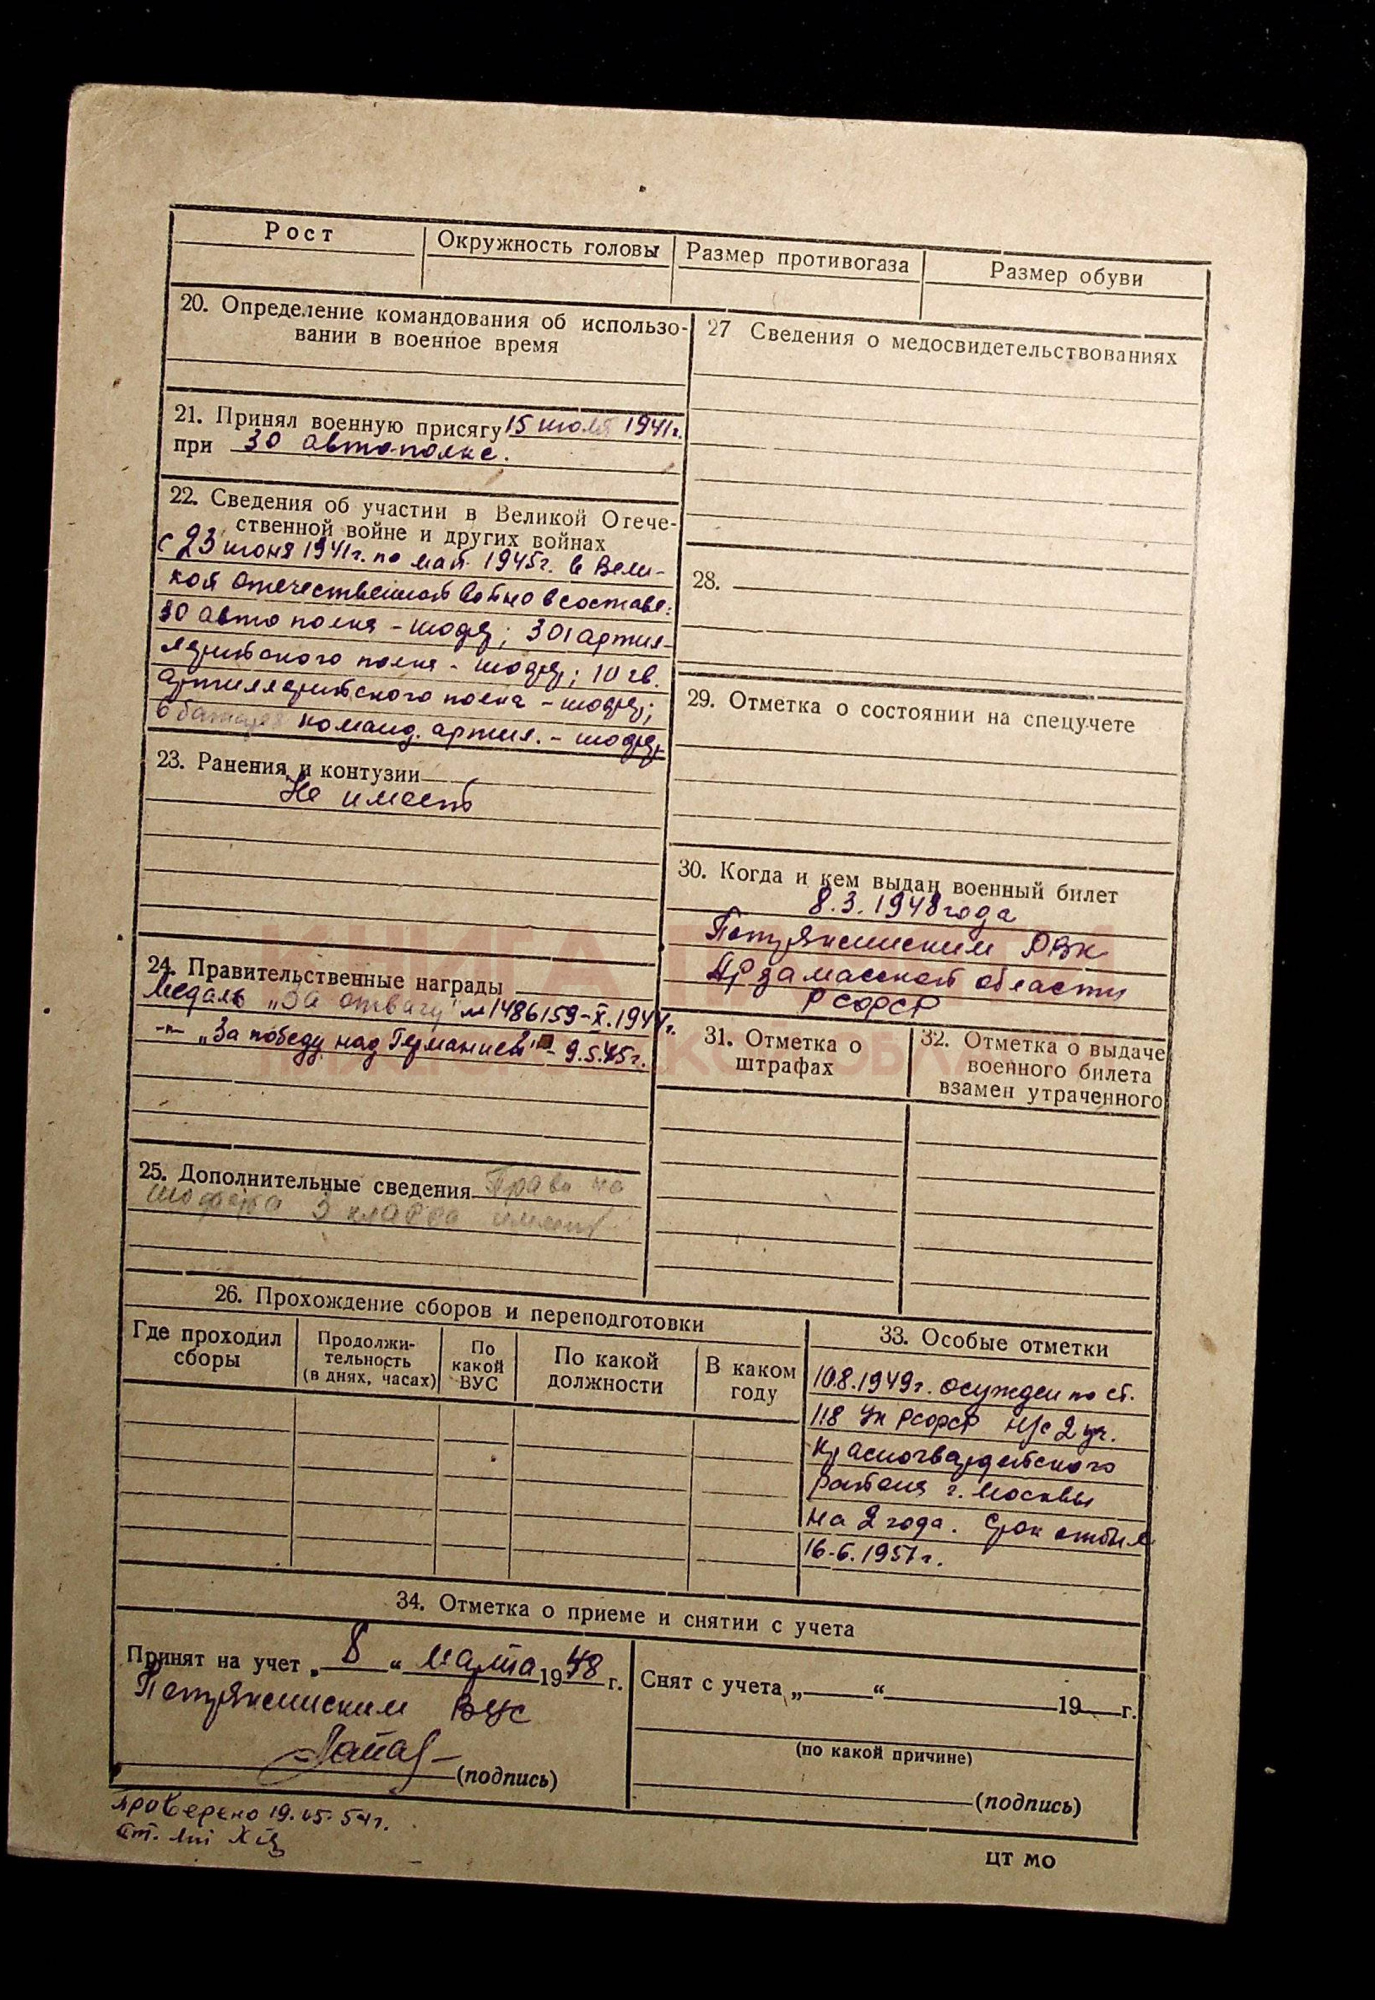 Рост
Окружность головы
Размер противогаза
Размер обуви
20. Определение командования об использо-
вании в военное время
21. Принял военную присягу 15 июля 1941г.
при 30 автополке.
22. Сведения об участии в Великой Отече-
ственной войне и других войнах
с 23 июня 1941г. по май 1945г. в Вели-
кой отечественной войне в составе:
30 авто полка - шофер; 301 артил-
лерийского полка - шофер; 10 гв.
артиллерийского полка - шофер;
6 команд. артил. - шофер
23. Ранения и контузии
Не имеет
24. Правительственные награды
медаль „За отвагу" № 1486159-X.1944г.
-"- „За победу над Германией" - 9.5.45г.
25. Дополнительные сведения Права на
шофера 3 класса имеет
26. Прохождение сборов и переподготовки
Где проходил
сборы
Продолжи-
тельность
(в днях, часах)
По
какой
ВУС
По какой
должности
В каком
году
27 Сведения о медосвидетельствованиях
28.
29. Отметка о состоянии на спецучете
30. Когда и кем выдан военный билет
8.3.1948 года
РВК
Арзамасской области
РСФСР
31. Отметка о
штрафах
32. Отметка о выдаче
военного билета
взамен утраченного
33. Особые отметки
10.8.1949г. осужден по ст.
118 УК РСФСР Н/с 2 уч.
Красногвардейского
района г. Москвы
на 2 года. Срок отбыл
16.6.1951г.
34. Отметка о приеме и снятии с учета
Принят на учет „ 8 “ марта 1948 г.
(подпись)
Снят с учета „ “ 19 г.
(по какой причине)
(подпись)
Проверено 19.05.54г.
ЦТ МО
КНИГА ПАМЯТИ